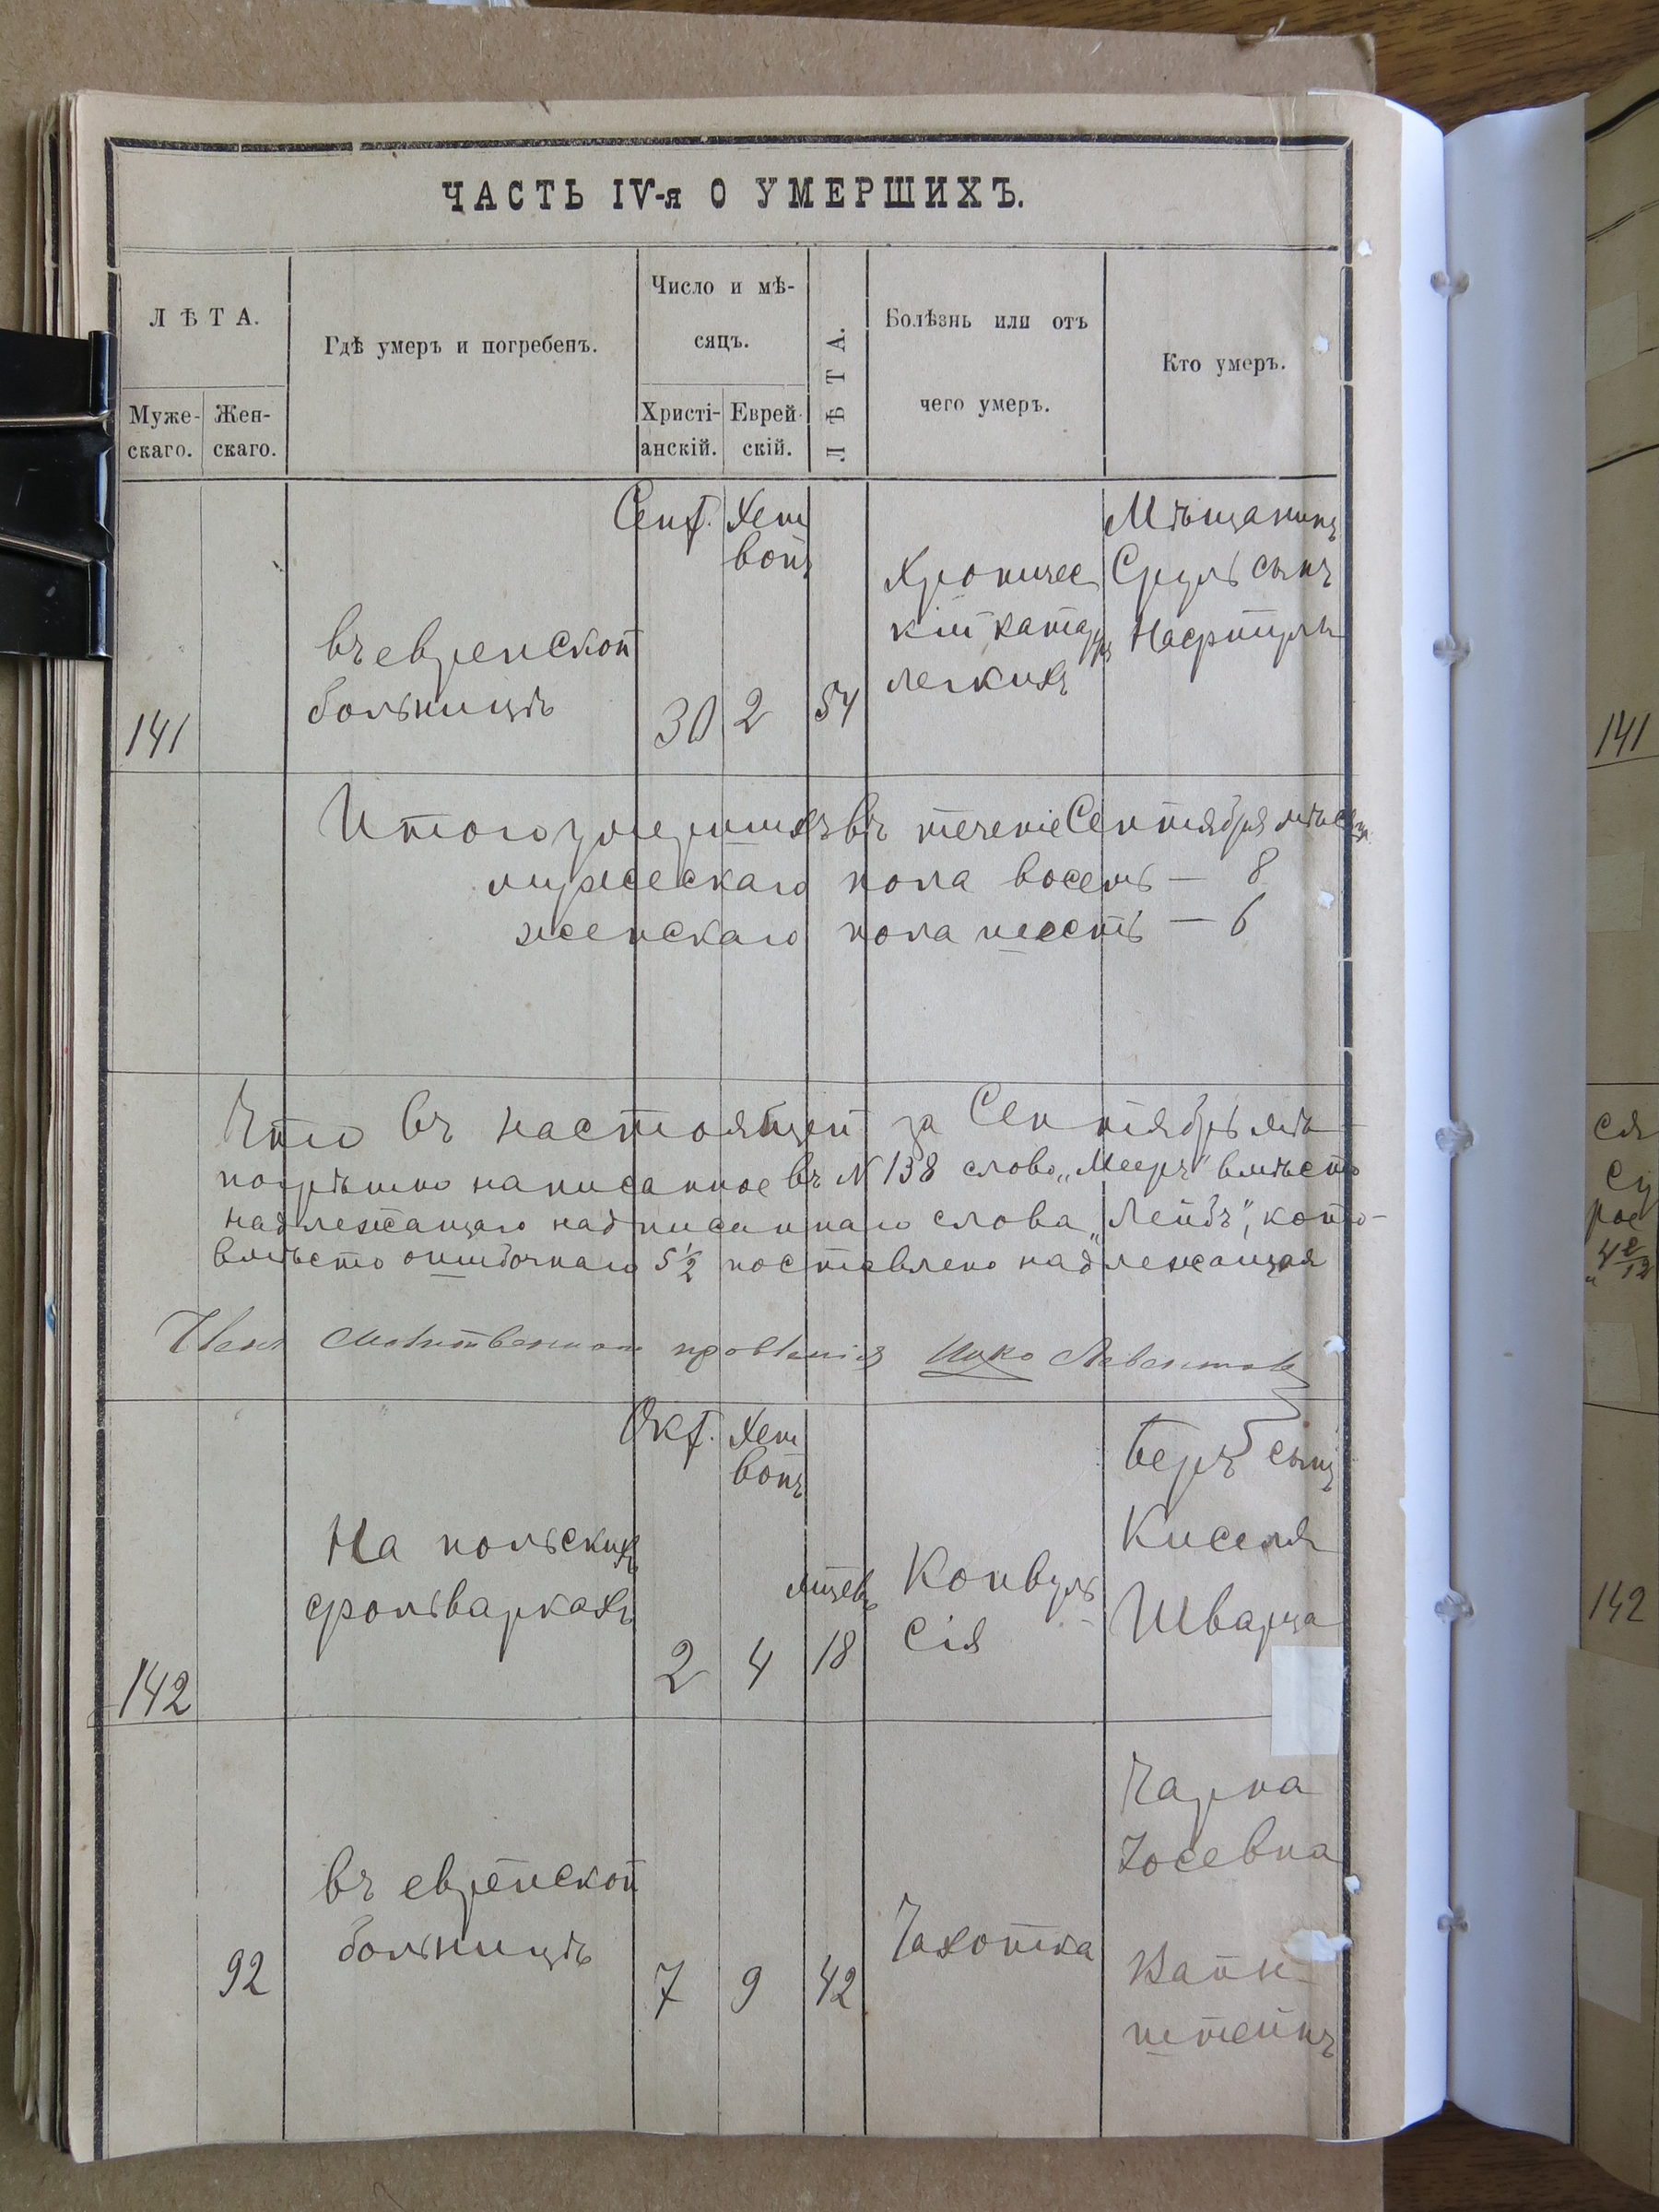 ЧАСТЬ IV-я О УМЕРШИХЪ.
ЛѢТА.
Муже-
скаго.
Жен-
скаго.
Гдѣ умеръ и погребенъ.
Число и мѣ-
сяцъ.
Христі-
анскій.
Еврей-
скій.
ЛѢТА.
Болѣзнь или отъ
чего умеръ.
Кто умеръ.
141
въ еврейской
больницѣ
Сент.
30
Хеш
вонъ
2
54
Хроничес
кій катарръ
легкихъ
Мѣщанинъ
Сруль сынъ
Нафтула
Итого умершихъ въ теченіе Сентября мѣсяца
мужескаго пола восемь — 8
женскаго пола шесть — 6
Что въ настоящей за Сентябрь мѣ
погрѣшно написанное въ N 138 слово „Мееръ" вмѣсто
надлежащаго надписаннаго слова „Лейбъ", кото-
вмѣсто ошибочнаго 5½ поставлено надлежащая
Членъ молитвеннаго правленія
142
На польскихъ
фольваркахъ
Окт.
2
Хеш
вонъ
4
мѣсяцевъ
18
Конвуль
сія
Беръ сынъ
Киселя
Шварца
92
въ еврейской
больницѣ
7
9
42
Чахотка
Чарна
Іосевна
Вайн-
штейнъ
141
ся
142